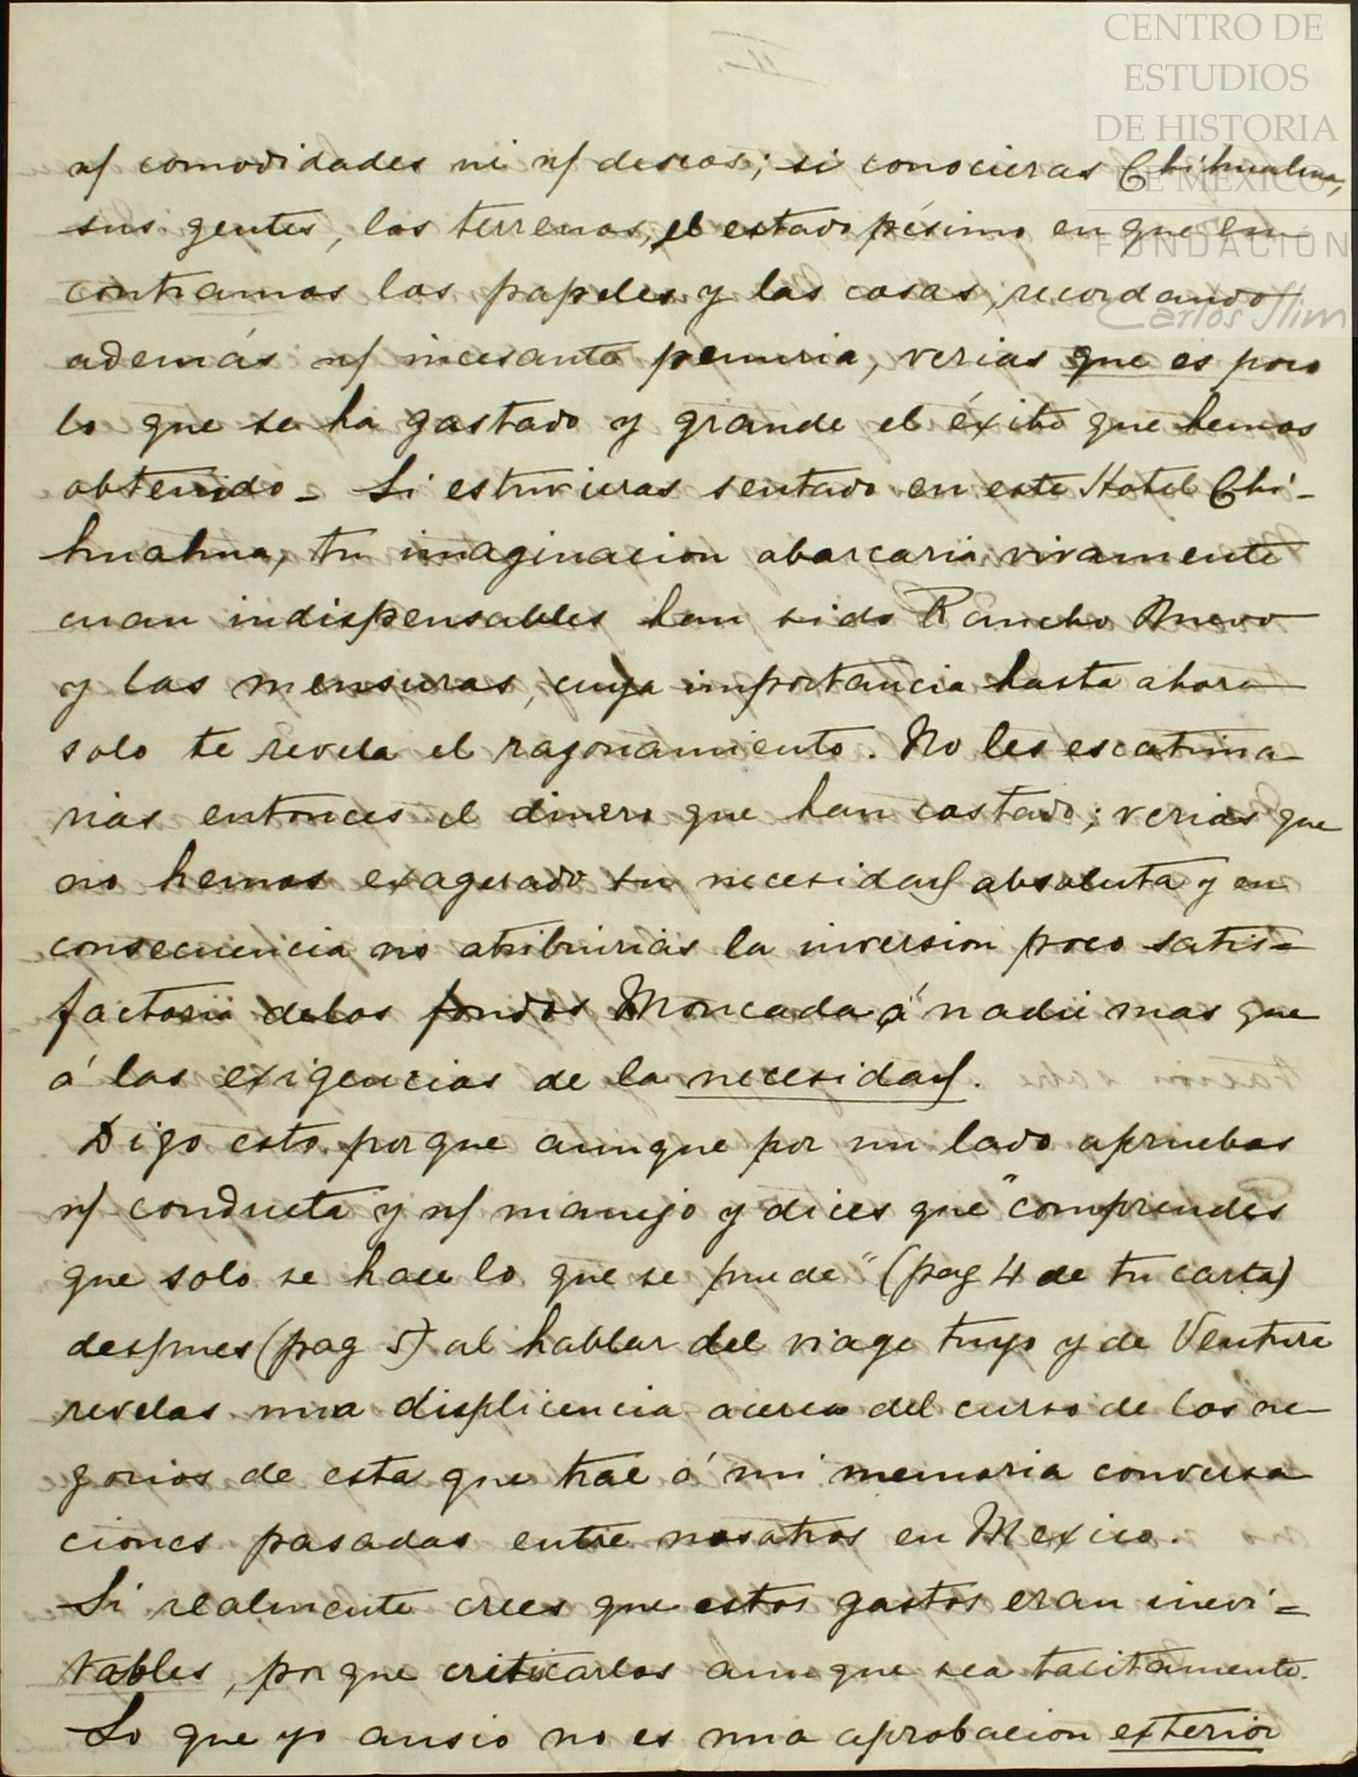 CENTRO DE
ESTUDIOS
DE HISTORIA
DE MÉXICO
FUNDACIÓN
Carlos Slim
n/ comodidades ni n/ deseos; si conocieras Chihuahua,
sus gentes, los terrenos, el estado pésimo en que en
contramos los papeles y las cosas, recordando
además n/ incesante penuria, verias que es poco
lo que se ha gastado y grande el éxito que hemos
obtenido_ Si estuvieras sentado en este Hotel Chi-
huahua, tu imaginacion abarcaria vivamente
cuan indispensables han sido Rancho Nuevo
y las mensuras, cuya importancia hasta ahora
solo te revela el razonamiento. No les escatima
rias entonces el dinero que han costado; verias que
no hemos exagerado su necesidad absoluta y en
consecuencia no atribuirias la inversion poco satis=
factoria de los fondos Moncada á nadie mas que
á las exigencias de la necesidad.
Digo esto porque aunque por un lado apruebas
n/ conducta y n/ manejo y dices que "comprendes
que solo se hace lo que se puede" (pag 4 de tu carta)
despues (pag 5) al hablar del viage tuyo y de Ventura
revelas una displicencia acerca del curso de los ne
gocios de esta que trae á mi memoria conversa
ciones pasadas entre nosotros en Mexico.
Si realmente crees que estos gastos eran inevi=
tables, por que criticarlos aunque sea tacitamente.
Lo que yo ansio no es una aprobacion exterior